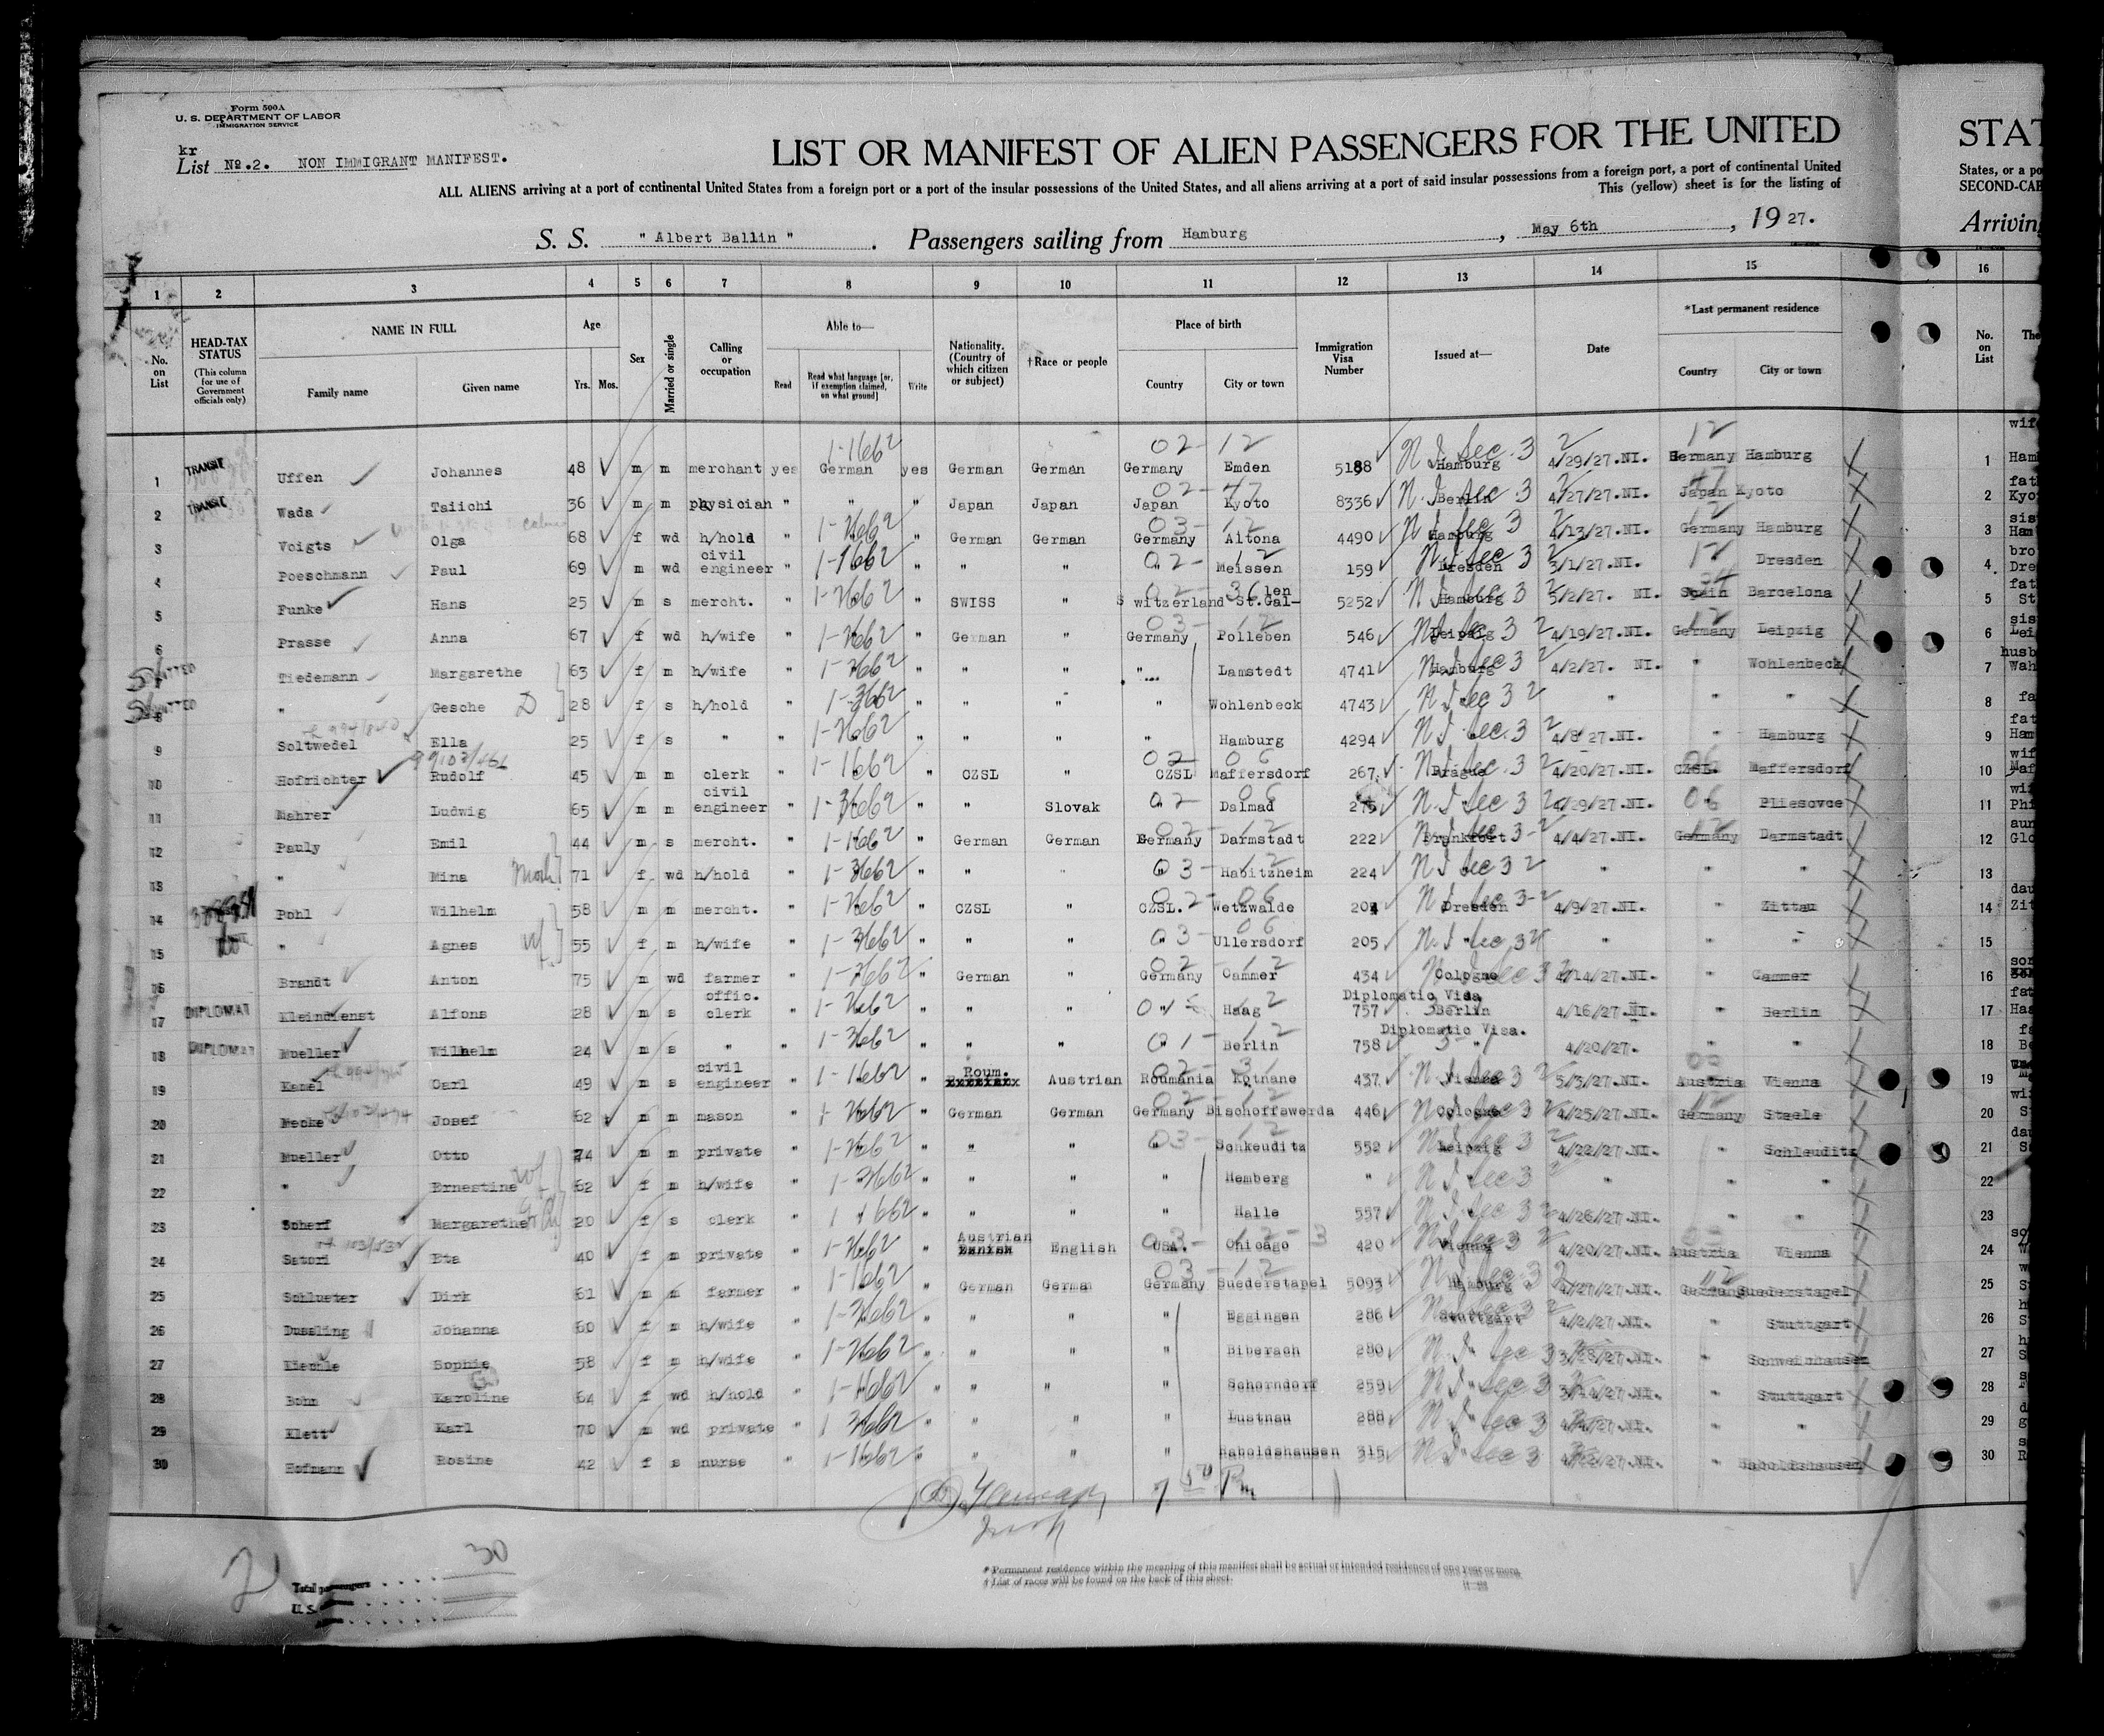 Form 500A
U. S. DEPARTMENT OF LABOR
IMMIGRATION SERVICE
kr
List No.2. NON IMMIGRANT MANIFEST.
LIST OR MANIFEST OF ALIEN PASSENGERS FOR THE UNITED
STAT
ALL ALIENS arriving at a port of continental United States from a foreign port or a port of the insular possessions of the United States, and all aliens arriving at a port of said insular possessions from a foreign port, a port of continental United
States, or a po
This (yellow) sheet is for the listing of
SECOND-CAB
S. S. " Albert Ballin " . Passengers sailing from Hamburg , May 6th , 19 27.
Arriving
1 2 3 4 5 6 7 8 9 10 11 12 13 14 15 16
No. on List
HEAD-TAX STATUS (This column for use of Government officials only)
NAME IN FULL
Family name Given name
Age
Yrs. Mos.
Sex
Married or single
Calling or occupation
Able to—
Read Read what language [or, if exemption claimed, on what ground] Write
Nationality. (Country of which citizen or subject)
†Race or people
Place of birth
Country City or town
Immigration Visa Number
Issued at—
Date
*Last permanent residence
Country City or town
No. on List
1 TRANSIT Uffen Johannes 48 m m merchant yes German yes German German Germany Emden 5188 Hamburg 4/29/27.NI. Germany Hamburg 1
2 TRANSIT Wada Taiichi 36 m m physician " " " Japan Japan Japan Kyoto 8336 Berlin 4/27/27.NI. Japan Kyoto 2
3 Voigts Olga 68 f wd h/hold " " German German Germany Altona 4490 Hamburg 4/13/27.NI. Germany Hamburg 3
4 Poeschmann Paul 69 m wd civil engineer " " " " " Meissen 159 Dresden 3/1/27.NI. Dresden 4
5 Funke Hans 25 m s mercht. " " SWISS " Switzerland St.Gallen 5252 Hamburg 5/2/27. NI. Spain Barcelona 5
6 Prasse Anna 67 f wd h/wife " " German " Germany Polleben 546 Leipzig 4/19/27.NI. Germany Leipzig 6
7 Tiedemann Margarethe 63 f m h/wife " " " " " Lamstedt 4741 Hamburg 4/2/27. NI. " Wohlenbeck 7
8 " Gesche 28 f s h/hold " " " " " Wohlenbeck 4743 " " " 8
9 Soltwedel Ella 25 f s " " " " " " Hamburg 4294 4/8 27.NI. " Hamburg 9
10 Hofrichter Rudolf 45 m m clerk " " CZSL " CZSL Maffersdorf 267 Prague 4/20/27.NI. CZSL. Maffersdorf 10
11 Mahrer Ludwig 65 m m civil engineer " " " Slovak " Dalmad 275 4/29/27.NI. Pliesovce 11
12 Pauly Emil 44 m s mercht. " " German German Germany Darmstadt 222 Frankfort 4/4/27.NI. Germany Darmstadt 12
13 " Mina 71 f wd h/hold " " " " " Habitzheim 224 " " " 13
14 Pohl Wilhelm 58 m m mercht. " " CZSL " CZSL. Wetzwalde 204 Dresden 4/9/27.NI. " Zittau 14
15 " Agnes 55 f m h/wife " " " " " Ullersdorf 205 " " " 15
16 Brandt Anton 75 m wd farmer " " German " Germany Cammer 434 Cologne 4/14/27.NI. " Cammer 16
17 DIPLOMAT Kleindienst Alfons 28 m s offic. clerk " " " " " Haag Diplomatic Visa 757 Berlin 4/16/27.NI. " Berlin 17
18 DIPLOMAT Mueller Wilhelm 24 m s " " " " " " Berlin Diplomatic Visa. 758 " 4/20/27. " " 18
19 Kamel Carl 49 m s civil engineer " " Roum. Austrian Roumania Kotnane 437 Vienna 5/3/27.NI. Austria Vienna 19
20 Mecke Josef 62 m m mason " " German German Germany Bischoffswerda 446 Cologne 4/25/27.NI. Germany Steele 20
21 Mueller Otto 74 m m private " " " " " Schkeuditz 552 Leipzig 4/22/27.NI. " Schleuditz 21
22 " Ernestine 62 f m h/wife " " " " " Hemberg " " " " 22
23 Scherf Margarethe 20 f s clerk " " " " " Halle 557 4/26/27.NI. " " 23
24 Satori Eta 40 f m private " " Austrian English USA. Chicago 420 Vienna 4/20/27.NI. Austria Vienna 24
25 Schlueter Dirk 61 m m farmer " " German German Germany Suederstapel 5093 Hamburg 4/27/27.NI. Germany Suederstapel 25
26 Dussling Johanna 60 f m h/wife " " " " " Eggingen 286 Stuttgart 4/2/27.NI. " Stuttgart 26
27 Sophie 58 f m h/wife " " " " " Biberach 280 " 3/28/27.NI. " Schweinhausen 27
28 Bohn Karoline 64 f wd h/hold " " " " " Schorndorf 259 " 3/14/27.NI. " Stuttgart 28
29 Klett Karl 70 m wd private " " " " " Lustnau 288 " 4/4/27.NI. " " 29
30 Hofmann Rosine 42 f s nurse " " " " " Haboldshausen 315 " 27.NI. " Haboldshausen 30
7 50 Pm
30
Total passengers
U. S.
* Permanent residence within the meaning of this manifest shall be actual or intended residence of one year or more.
† List of races will be found on the back of this sheet.